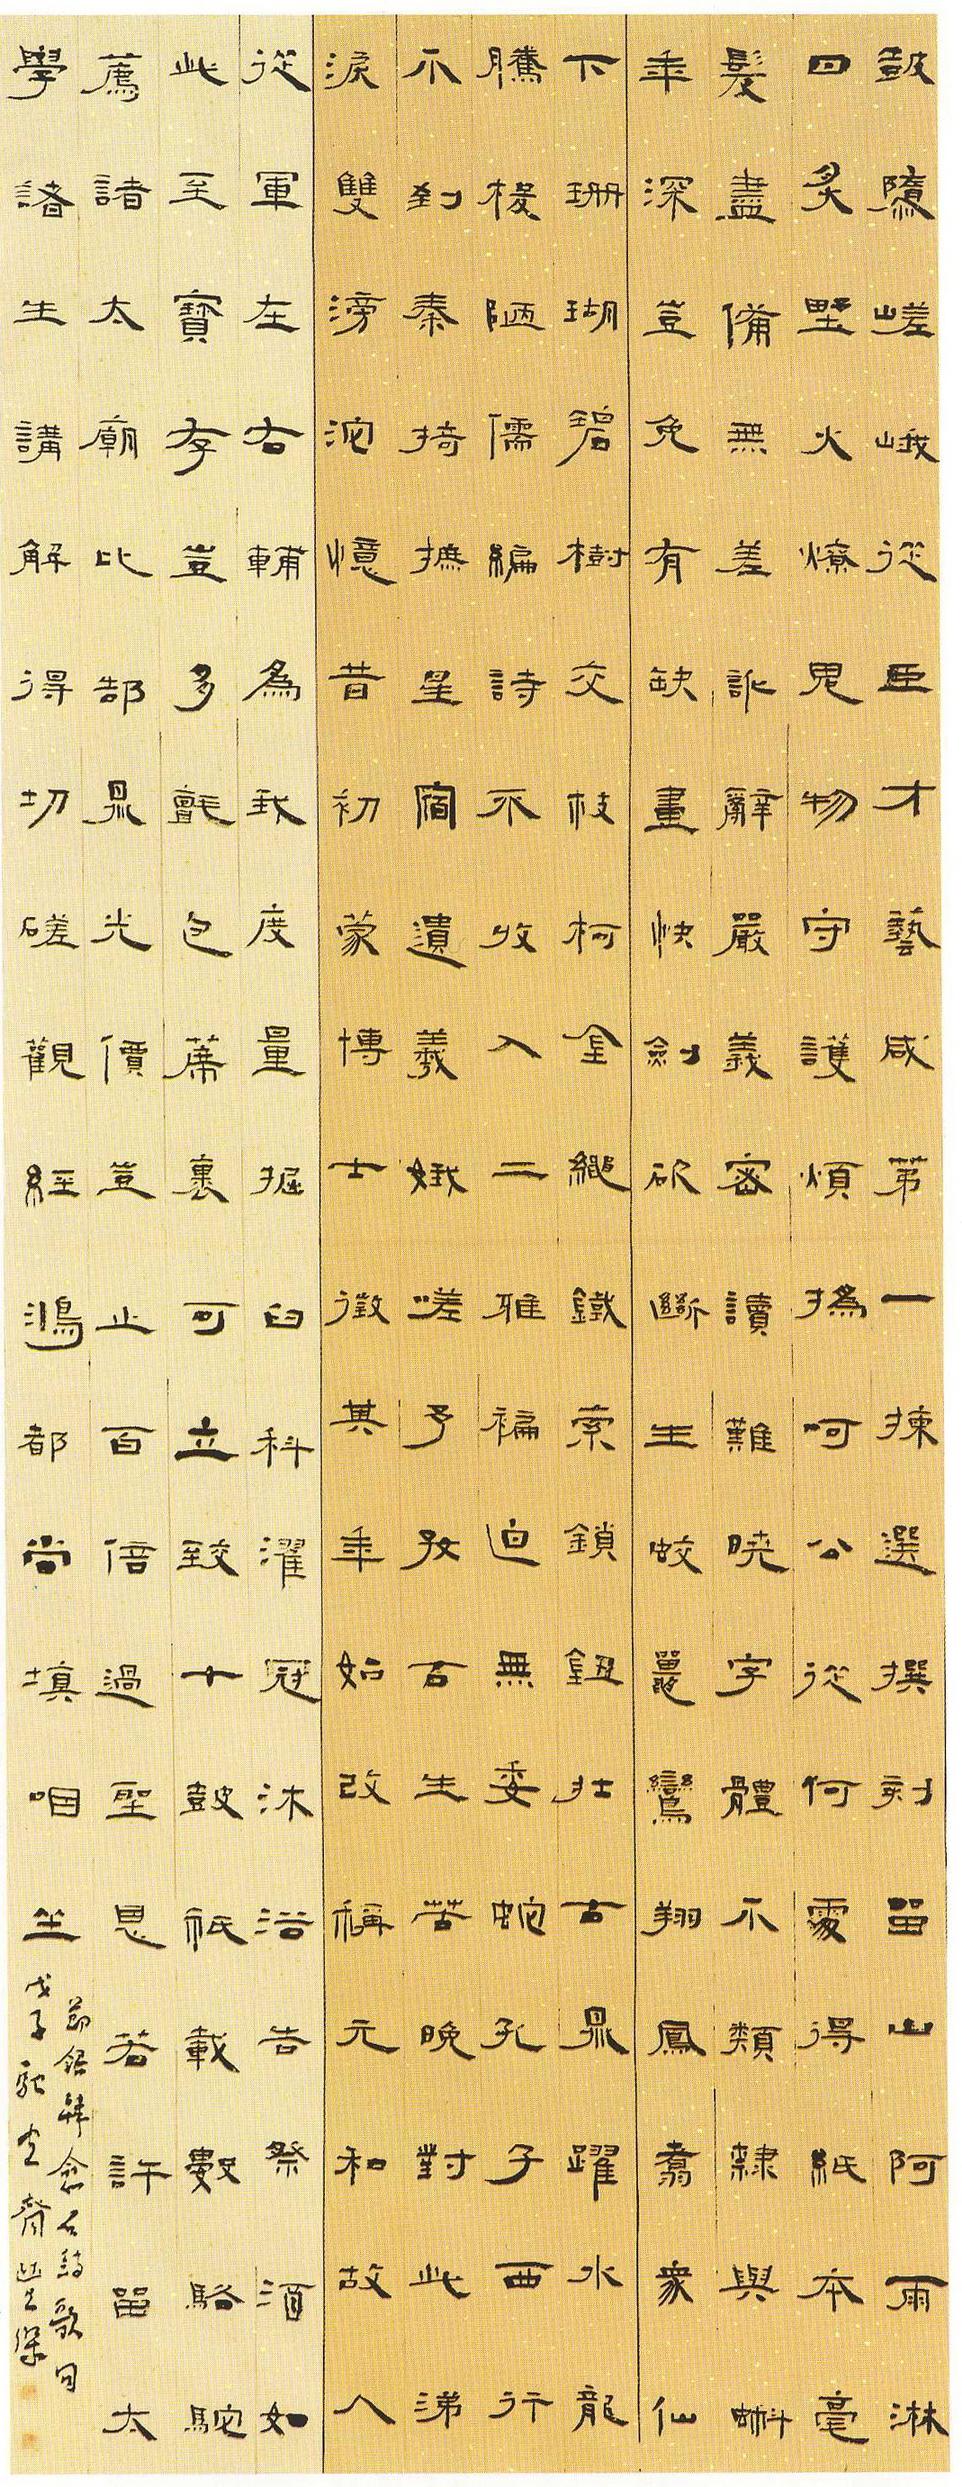 鼓隳嵯峨從臣才藝咸第一揀選撰刻留山阿雨淋
日炙野火燎鬼物守護煩撝呵公從何處得紙本毫
髮盡備無差訛辭嚴義密讀難曉字體不類隸與蝌
年深豈免有缺畫快劍斫斷生蛟鼉鸞翔鳳翥眾仙
下珊瑚碧樹交枝柯金繩鐵索鎖鈕壯古鼎躍水龍
騰梭陋儒編詩不收入二雅褊迫無委蛇孔子西行
不到秦掎摭星宿遺羲娥嗟予好古生苦晚對此涕
淚雙滂沱憶昔初蒙博士徵其年始改稱元和故人
從軍在右輔為我度量掘臼科濯冠沐浴告祭酒如
此至寶存豈多氈包席裹可立致十鼓祇載數駱駝
薦諸太廟比郜鼎光價豈止百倍過聖恩若許留太
學諸生講解得切磋觀經鴻都尚填咽坐
節錄韓愈石鼓歌句
戊子